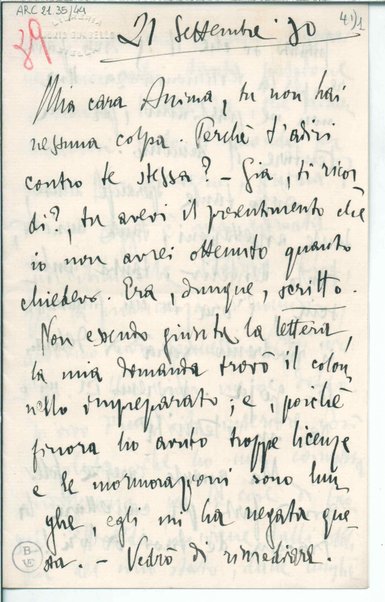 ARC 21.35/44
41/1
39
21 Settembre '90
Mia cara Anima, tu non hai
nessuna colpa. Perchè t'adiri
contro te stessa? – Già, ti ricor
di?, tu avevi il presentimento che
io non avrei ottenuto quanto
chiedevo. Era, dunque, scritto.
Non essendo giunta la lettera,
la mia domanda trovò il colon
nello impreparato; e, poichè
finora ho avuto troppe licenze
e le mormorazioni sono lun
ghe, egli mi ha negata que
sta. – Vedrò di rimediare.